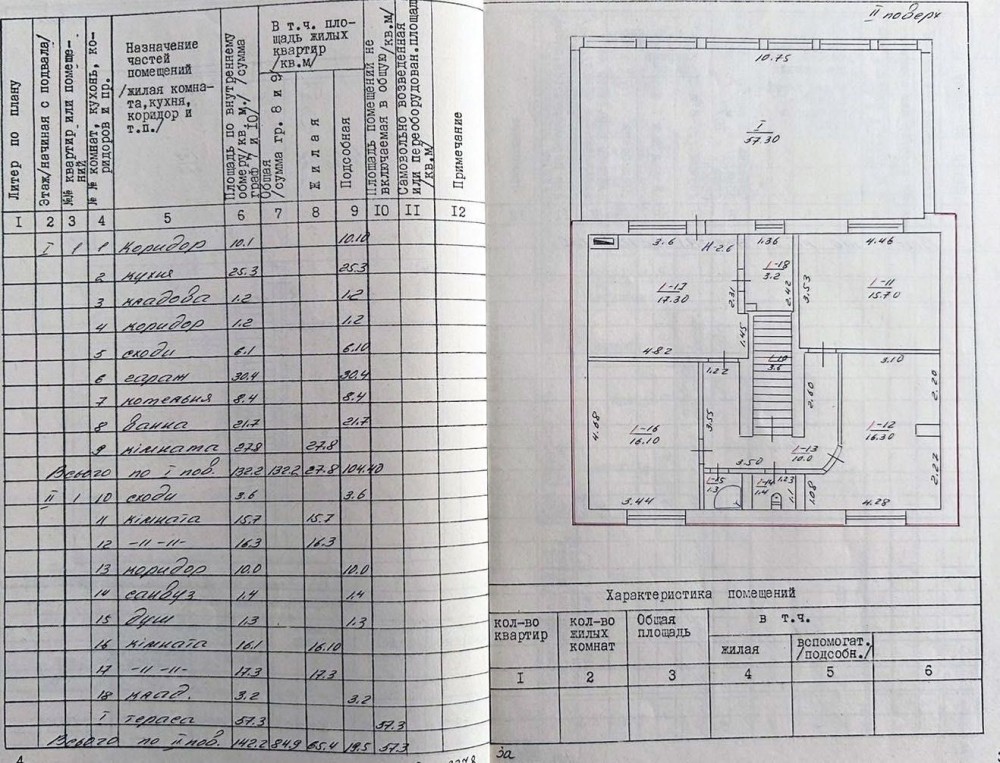 Литер по плану
Этаж/начиная с подвала/
№№ квартир или помеще-
ний
№№ комнат, кухонь, ко-
ридоров и пр.
Назначение
частей
помещений
/жилая комна-
та,кухня,
коридор и
т.п./
Площадь по внутреннему
обмеру/кв. м./ /сумма
граф 7 и 10/
В т.ч. пло-
щадь жилых
квартир
/кв.м/
Общая
/сумма гр. 8 и 9/
Жилая
Подсобная
Площадь помещений не
включаемая в общую/кв.м/
Самовольно возведенная
или переоборудован.площадь
/кв.м/
Примечание
I 2 3 4 5 6 7 8 9 IO II I2
I 1 1 коридор 10.1 10.10
2 кухня 25.3 25.3
3 кладова 1.2 1.2
4 коридор 1.2 1.2
5 сходи 6.1 6.10
6 гараж 30.4 30.4
7 котельня 8.4 8.4
8 ванна 21.7 21.7
9 кімната 27.8 27.8
Всього по I пов. 132.2 132.2 27.8 104.40
II 1 10 сходи 3.6 3.6
11 кімната 15.7 15.7
12 -11-11- 16.3 16.3
13 коридор 10.0 10.0
14 санвуз 1.4 1.4
15 душ 1.3 1.3
16 кімната 16.1 16.10
17 -11-11- 17.3 17.3
18 клад. 3.2 3.2
I тераса 57.3 57.3
Всього по II пов. 142.2 84.9 65.4 19.5 57.3
4
II поверх
10.75
I
57.30
3.6 H-2.6 1.36 4.46
1-17
17.30
1-18
3.2
1-11
15.70
2.31 2.42 3.53
1.45
4.82
1.22
1-10
3.6
3.10
2.20
2.60
4.68
3.55
1-16
16.10
1-12
16.30
1-13
10.0
3.50
2.27
1-15
1.3
1-14
1.4
1.23
1.1
1.08
3.44
4.28
Характеристика помещений
кол-во
квартир
кол-во
жилых
комнат
Общая
площадь
в т.ч.
жилая
вспомогат.
/подсобн./
I 2 3 4 5 6
за